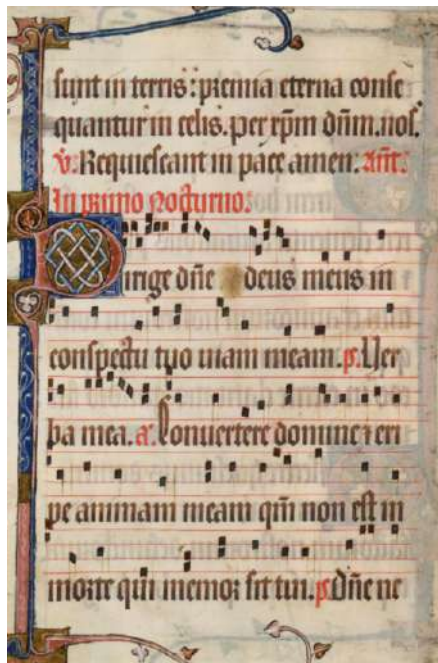 sunt in terris: premia eterna conse
quantur in celis. per xp̄m dn̄m. nos̄.
v̄. Requiescant in pace amen. an̄t.
In primo nocturno.
Dirige dn̄e deus meus in
conspectu tuo uiam meam. p̄. Uer
ba mea. a. Conuertere domine et eri
pe animam meam qm̄ non est in
morte qui memor sit tui. p̄. Dn̄e ne